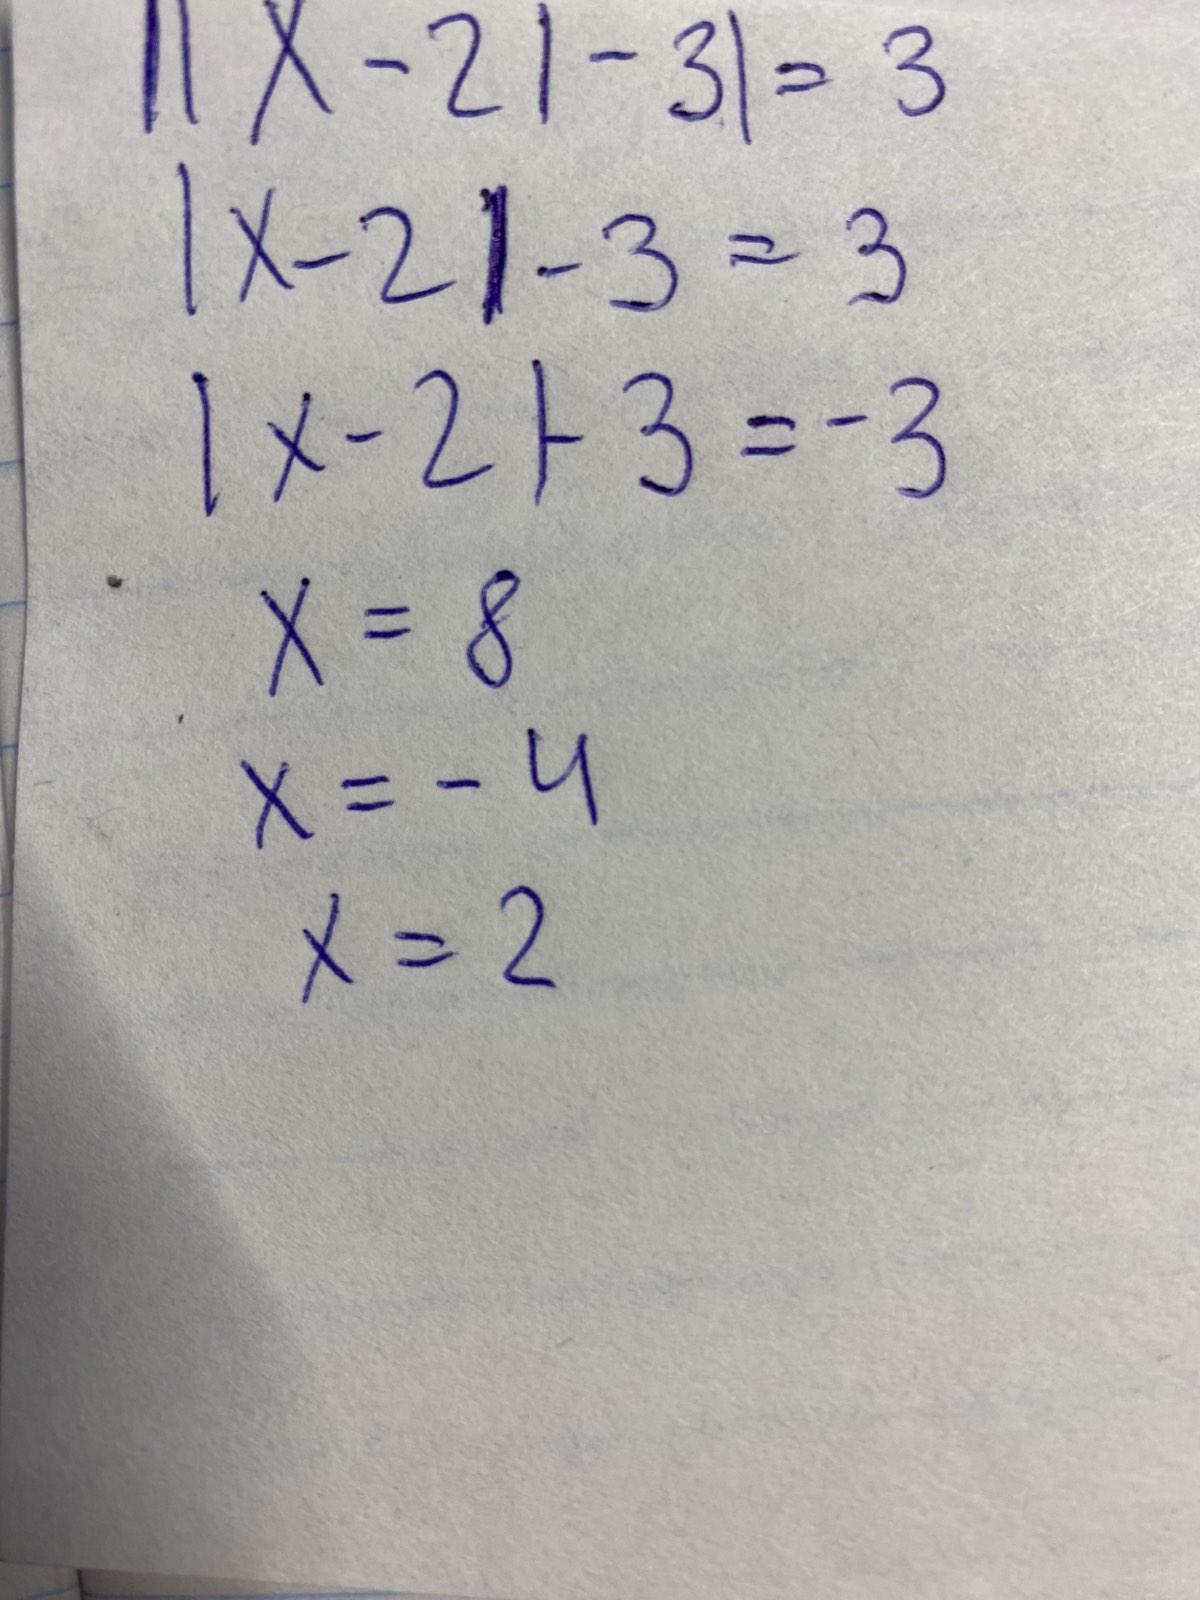 ||x-2|-3|=3
|x-2|-3=3
|x-2|-3=-3
x=8
x=-4
x=2